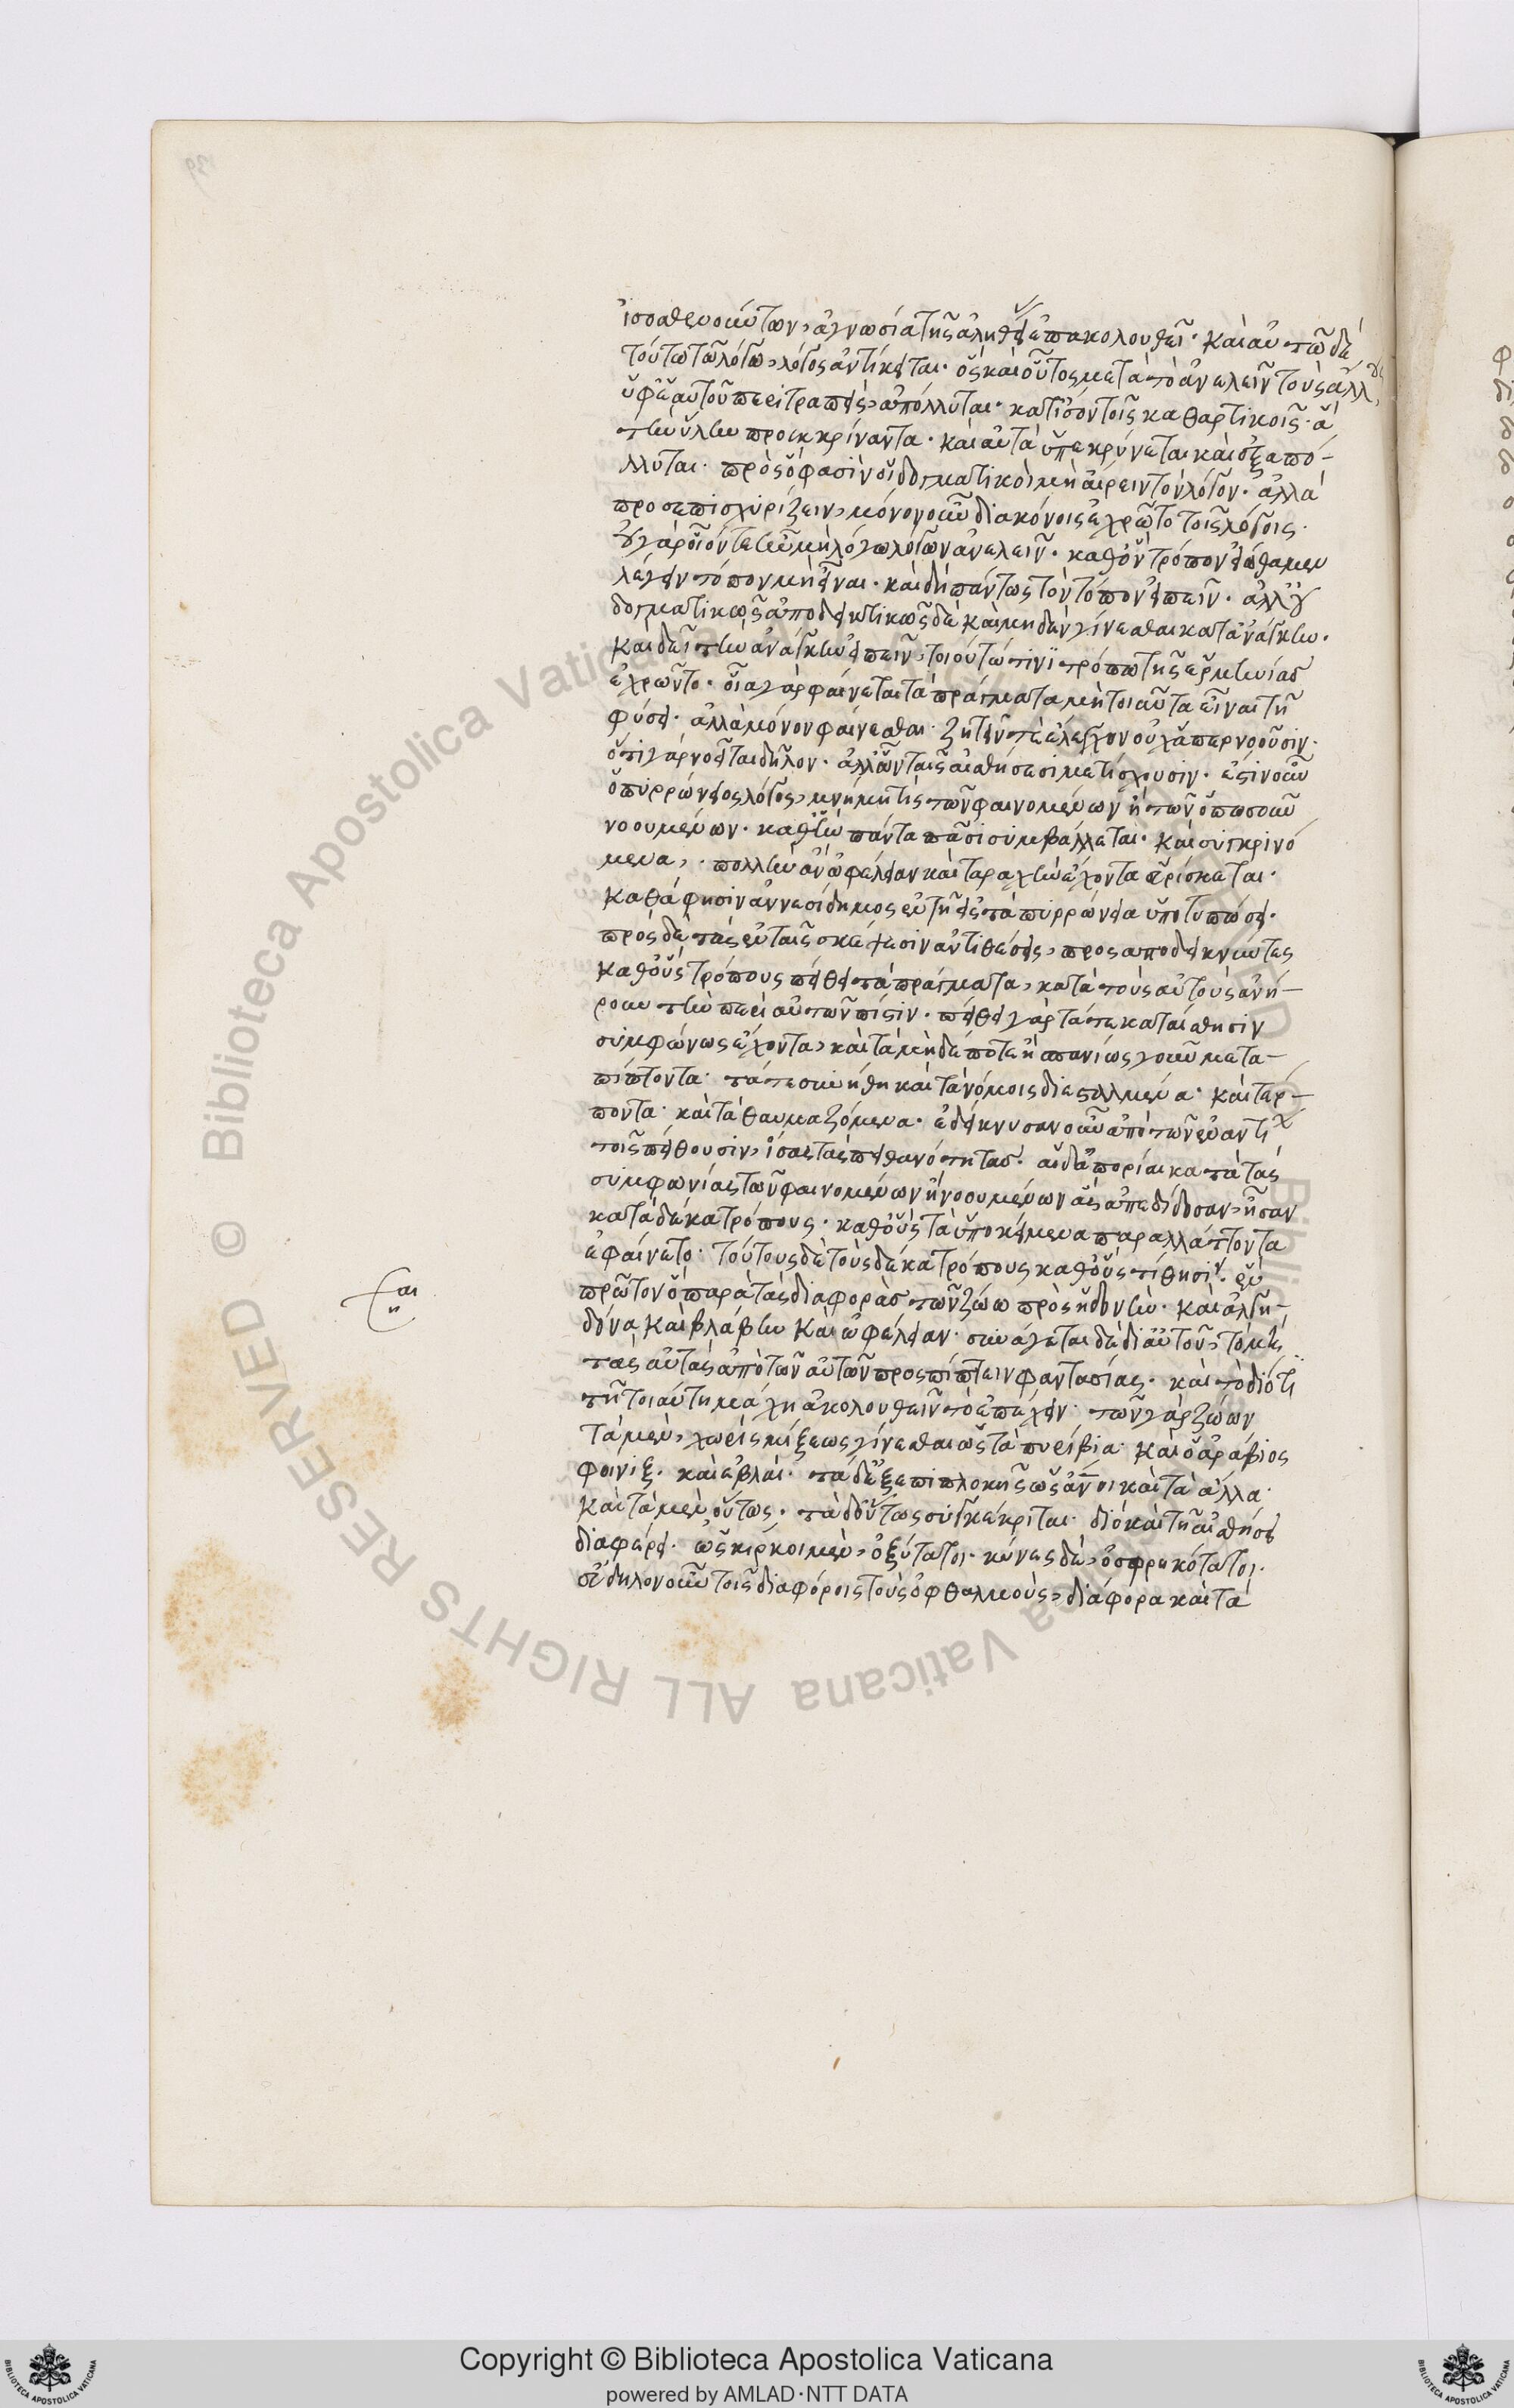 ἰσοσθενούντων, ἀγνωσία τῆς ἀληθείας ἐπακολουθεῖ· καὶ αὐτῶ δὲ
τούτω τῶ λόγω, λόγος ἀντίκειται· ὃς καὶ οὗτος μετὰ τὸ ἀνελεῖν τοὺς ἄλλους
ὑφ' ἑαυτοῦ περιτραπεὶς, ἀπόλλυται· κατ' ἴσον τοῖς καθαρτικοῖς· ἃ
τὴν ὕλην προεκκρίναντα· καὶ αὐτὰ ὑπεκρίνεται καὶ ἐξαπό-
λλυται· πρὸς ὅ φασὶν οἱ δογματικοὶ μὴ αἴρειν τὸν λόγον· ἀλλὰ
προσεπισχυρίζειν, μόνον οὖν διακόνοις ἐχρῶντο τοῖς λόγοις·
οὐ γὰρ οἷόν τε ἦν μὴ λόγω λόγον ἀνελεῖν· καθ' ὃν τρόπον εἰώθαμεν
λέγειν τόπον μὴ εἶναι· καὶ δεῖ πάντως τὸν τόπον εἰπεῖν· ἀλλ' οὐ
δογματικῶς ἀποδεικτικῶς δὲ καὶ μηδὲν γίνεσθαι κατ' ἀνάγκην·
καὶ δεῖ τὴν ἀνάγκην εἰπεῖν, τοιούτω τινὶ τρόπω τῆς ἑρμηνείας
ἐχρῶντο· οἷα γὰρ φαίνεται τὰ πράγματα μὴ τοιαῦτα εἶναι τῆ
φύσει· ἀλλὰ μόνον φαίνεσθαι· ζητεῖν τε ἔλεγχον οὐχ ἅπερ νοοῦσιν·
ὅτι γὰρ νοεῖται δῆλον· ἀλλ' ὧν ταῖς αἰσθήσεσι μετίσχουσιν· ἔστιν οὖν
ὁ πυρρώνειος λόγος, μνήμη τις τῶν φαινομένων ἢ τῶν ὁπωσοῦν
νοουμένων· καθ' ἣν πάντα πᾶσι συμβάλλεται· καὶ συγκρινό
μενα, πολλὴν ἀνωφέλειαν καὶ ταραχὴν ἔχοντα εὑρίσκεται·
καθά φησιν αἰνεσίδημος ἐν τῆ εἰς τὰ πυρρώνεια ὑποτυπώσει·
πρὸς δὲ τὰς ἐν ταῖς σκέψεσιν ἀντιθέσεις, προσαποδεικνύντες
καθ' οὓς τρόπους πείθει τὰ πράγματα, κατὰ τοὺς αὐτοὺς ἀνή-
ρουν τὴν περὶ αὐτῶν πίστιν· πείθει γὰρ τά τε κατ' αἴσθησιν
συμφώνως ἔχοντα, καὶ τὰ μηδέποτε ἢ σπανίως γοῦν μετα-
πίπτοντα· τά τε συνήθη καὶ τὰ νόμοις διεσταλμένα· καὶ τέρ-
ποντα· καὶ τὰ θαυμαζόμενα· ἐδείκνυσαν οὖν ἀπὸ τῶν ἐναντί
τοῖς πείθουσιν, ἴσας τὰς πιθανότητας· αἱ δ' ἀπορίαι κατὰ τὰς
συμφωνίας τῶν φαινομένων ἢ νοουμένων ἃς ἀπεδίδοσαν, ἦσαν
κατὰ δέκα τρόπους· καθ' οὓς τὰ ὑποκείμενα παραλλάττοντα
ἐφαίνετο· τούτους δὲ τοὺς δέκα τρόπους καθ' οὓς τίθησιν· ὧν
πρῶτον ὁ παρὰ τὰς διαφορὰς τῶν ζώων πρὸς ἡδονὴν· καὶ ἀλγη-
δόνα καὶ βλάβην καὶ ὠφέλειαν· συνάγεται δὲ δι' αὐτοῦ, τὸ μὴ
τὰς αὐτὰς ἀπὸ τῶν αὐτῶν προσπίπτειν φαντασίας· καὶ τὸ διότι
τῆ τοιαύτη μάχη ἀκολουθεῖν τὸ ἐπέχειν· τῶν γὰρ ζώων
τὰ μὲν, χωρὶς μίξεως γίνεσθαι ὡς τὰ πυρίβια· καὶ ὁ ἀράβιος
φοίνιξ· καὶ εὐλαί· τὰ δ' ἐξ ἐπιπλοκῆς ὡς ἄνοι καὶ τὰ ἄλλα·
καὶ τὰ μὲν οὕτως· τὰ δ' οὕτως συγκέκριται· διὸ καὶ τῆ αἰσθήσει
διαφέρει· ὡς κίρκοι μὲν, ὀξύτατοι· κύνες δὲ, ὀσφρηκότατοι·
εὔδηλον οὖν τοῖς διαφόροις τοὺς ὀφθαλμοὺς, διάφορα καὶ τὰ
Copyright © Biblioteca Apostolica Vaticana
powered by AMLAD·NTT DATA